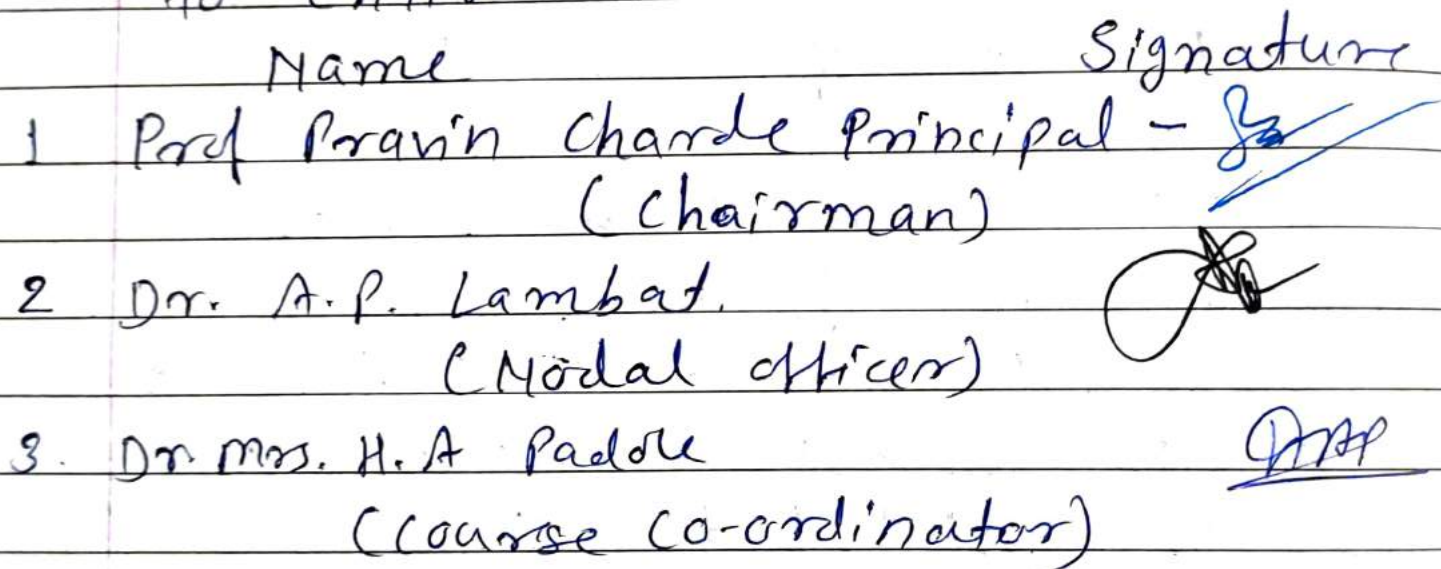 Name Signature
1 Prof Pravin Charde Principal -
(Chairman)
2 Dr. A.P. Lambat.
(Nodal officer)
3. Dr Mrs. H.A Padole
(Course Co-ordinator)